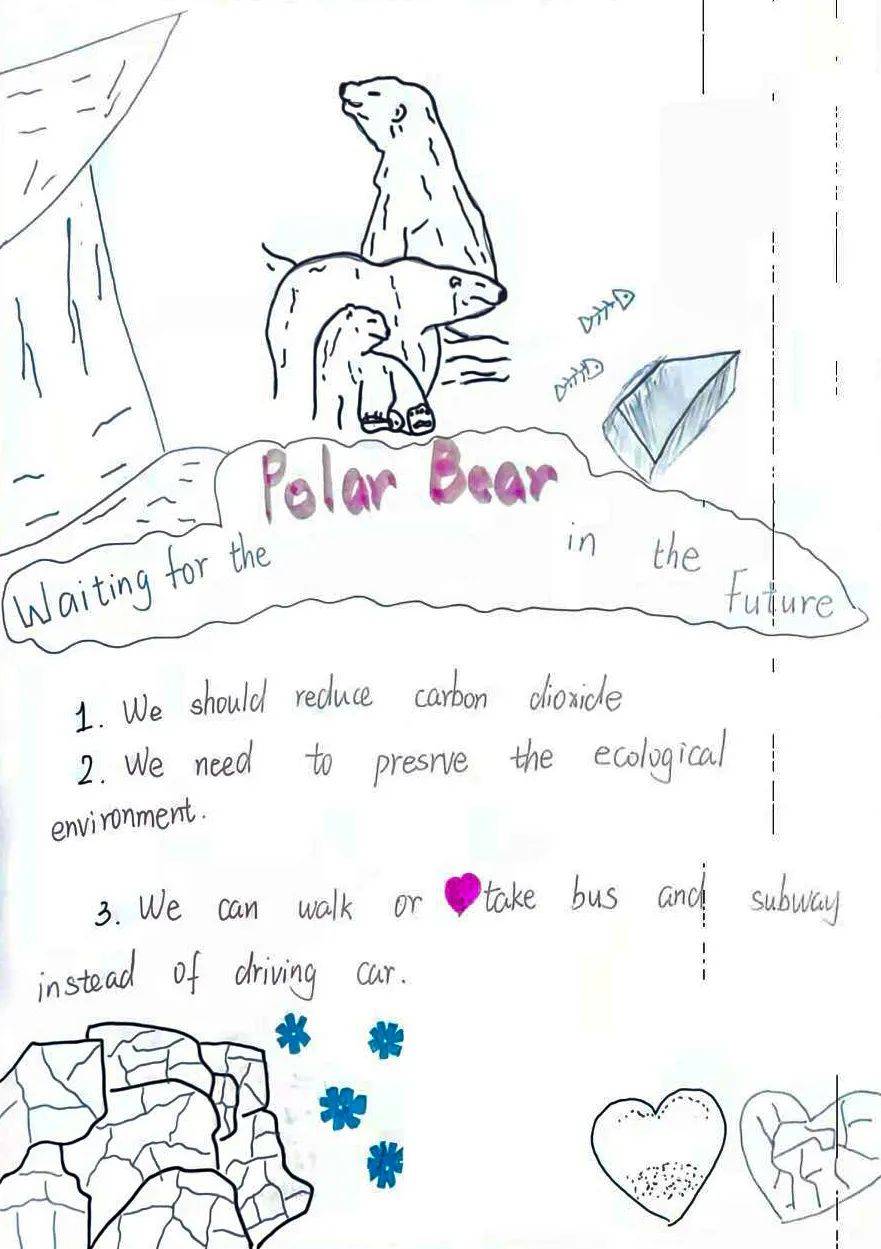 Polar Bear
Waiting for the in the Future
1. We should reduce carbon dioxide
2. We need to presrve the ecological
environment.
3. We can walk or take bus and subway
instead of driving car.